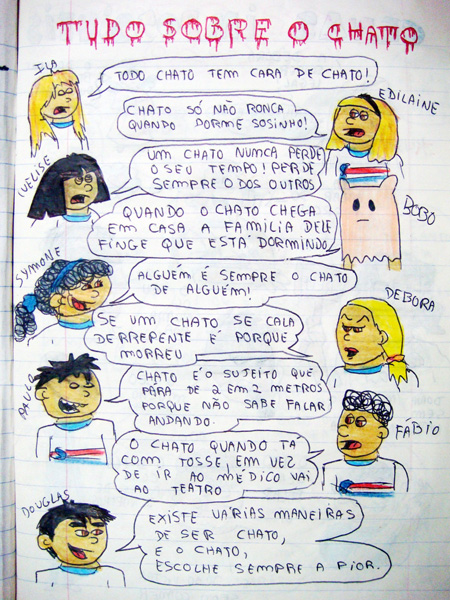 TUDO SOBRE O CHATO
ILA
TODO CHATO TEM CARA DE CHATO!
EDILAINE
CHATO SÓ NÃO RONCA
QUANDO DORME SOSINHO!
IVELICE
UM CHATO NUNCA PERDE
O SEU TEMPO! PERDE
SEMPRE O DOS OUTROS
BOBO
QUANDO O CHATO CHEGA
EM CASA A FAMILIA DELE
FINGE QUE ESTÁ DORMINDO
SYMONE
ALGUÉM É SEMPRE O CHATO
DE ALGUÉM!
DEBORA
SE UM CHATO SE CALA
DERREPENTE É PORQUE
MORREU
PAULO
CHATO É O SUJEITO QUE
PÁRA DE 2 EM 2 METROS
PORQUE NÃO SABE FALAR
ANDANDO.
FÁBIO
O CHATO QUANDO TÁ
COM TOSSE, EM VEZ
DE IR AO MÉDICO VAI
AO TEATRO
DOUGLAS
EXISTE VÁRIAS MANEIRAS
DE SER CHATO,
E O CHATO,
ESCOLHE SEMPRE A PIOR.